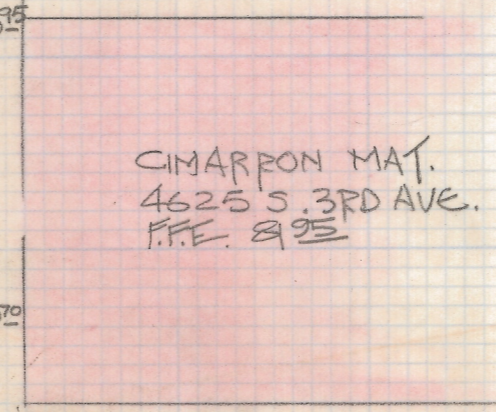 95
CIMARRON MAT.
4625 S. 3RD AVE.
F.F.E. 81 95
70